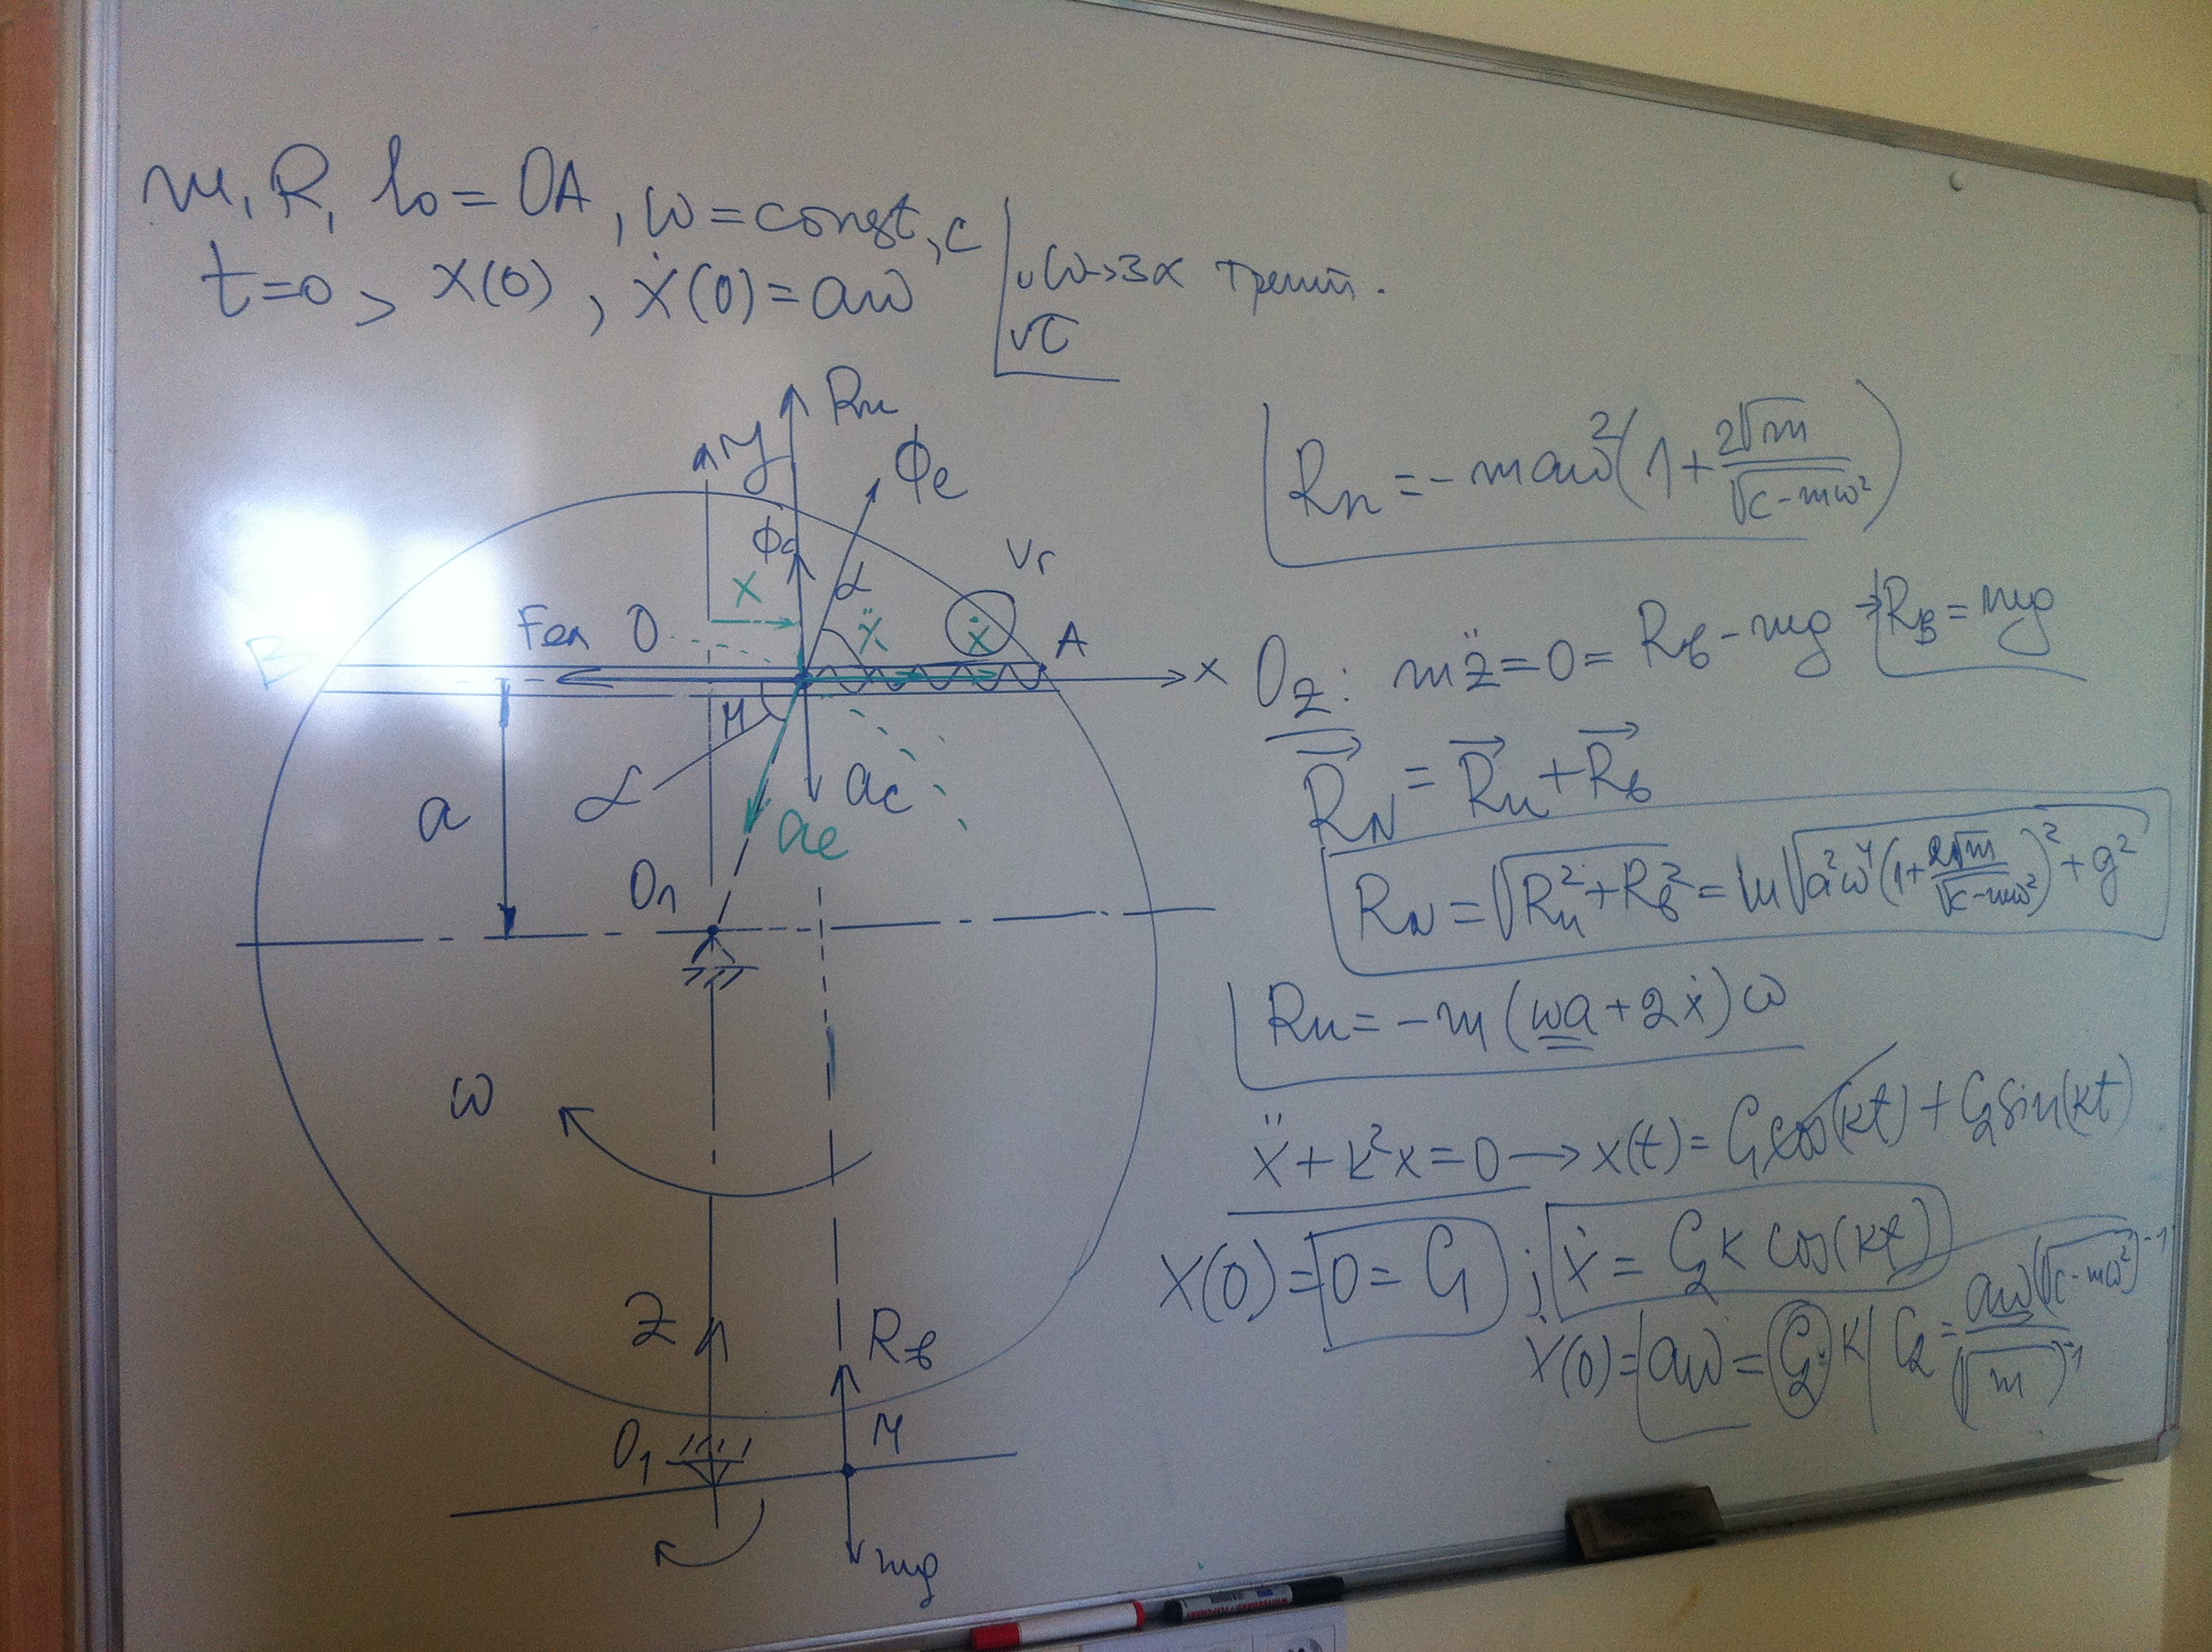 m, R, l₀ = OA, ω = const, c
t=0, x(0), ẋ(0) = aω
√c
Rн
y
Φe
Φc
α
Vr
x
ẍ
ẋ
A
B
Fел
O
x
M
α
a
ac
ae
O₁
ω
z
Rв
O₁
M
mg
Rн = -maω²(1 + 2√m / √(c-mω²))
Oz: mz̈ = 0 = Rв - mg → Rв = mg
R⃗N = R⃗н + R⃗в
RN = √(Rн² + Rв²) = m√(a²ω⁴(1 + 2√m / √(c-mω²))² + g²)
Rн = -m(ωa + 2ẋ)ω
ẍ + k²x = 0 → x(t) = C₁cos(kt) + C₂sin(kt)
x(0) = 0 = C₁ ; ẋ = C₂k cos(kt)
ẋ(0) = aω = C₂·k | C₂ = aω(√(c-mω²))⁻¹ / (√m)⁻¹